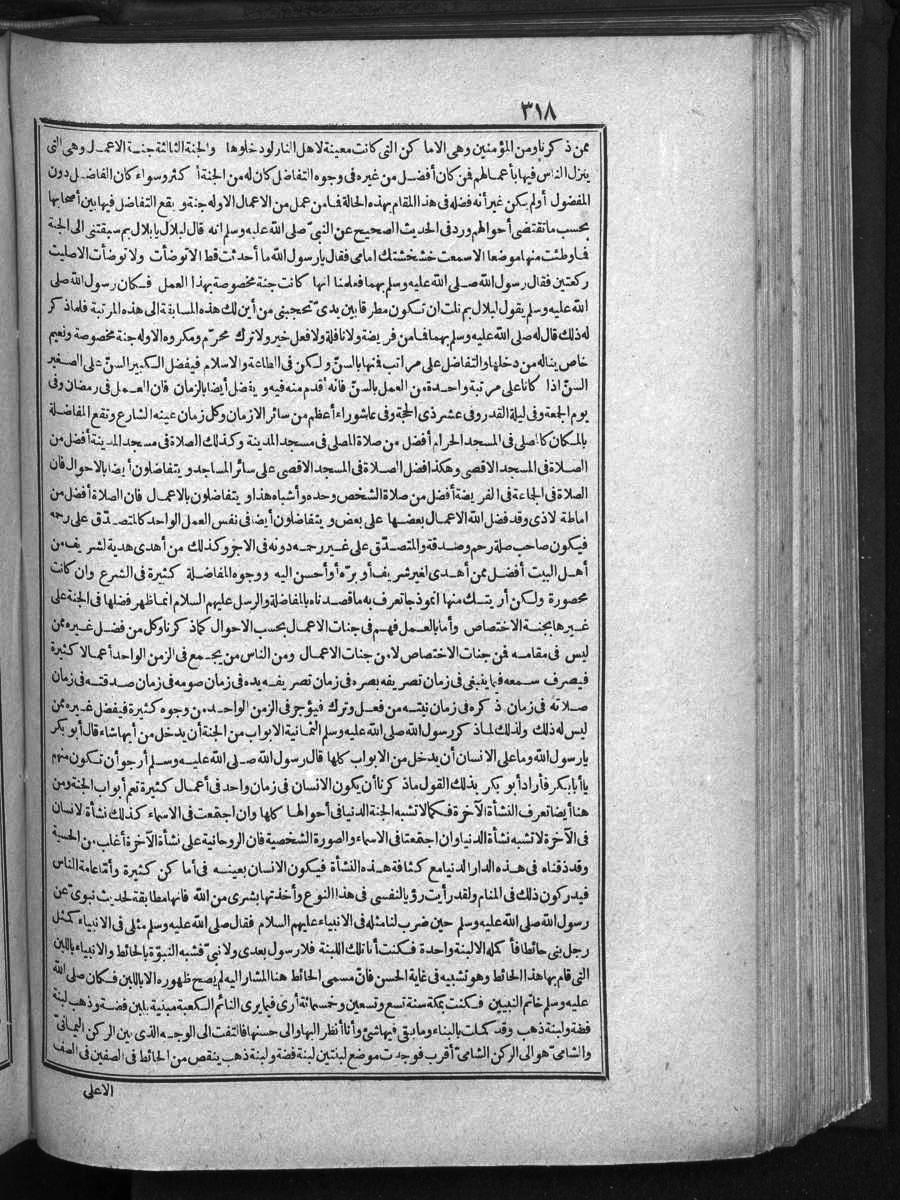 ٣١٨
ممن ذكرنا ومن المؤمنين وهى الاماكن التى كانت معينة لاهل النار لو دخلوها والجنة الثالثة جنة الاعمال وهى التى
ينزل الناس فيها بأعمالهم فمن كان أفضل من غيره فى وجوه التفاضل كان له من الجنة أكثر وسواء كان الفاضل دون
المفضول أو لم يكن غير أنه فضله فى هذا المقام بهذه الحالة فامن عمل من الاعمال الا وله جنة ويقع التفاضل فيها بين أصحابها
بحسب ما تقتضى أحوالهم ورد فى الحديث الصحيح عن النبىّ صلى الله عليه وسلم انه قال لبلال يا بلال بم سبقتنى الى الجنة
فما وطئت منها موضعا الا سمعت خشخشتك امامى فقال يا رسول الله ما أحدثت قط الا توضأت ولا توضأت الا صليت
ركعتين فقال رسول الله صلى الله عليه وسلم بهما فعلمنا انها كانت جنة مخصوصة بهذا العمل فكان رسول الله صلى
الله عليه وسلم يقول لبلال بم نلت ان تكون مطرقا بين يدىّ تحجبنى من أين لك هذه المسابقة الى هذه المرتبة فلما ذكر
له ذلك قال له صلى الله عليه وسلم بهما فما من فريضة ولا نافلة ولا فعل خير ولا ترك محرّم ومكروه الا وله جنة مخصوصة ونعيم
خاص يناله من دخلها والتفاضل على مراتب فمنها بالسنّ ولكن فى الطاعة والاسلام فيفضل الكبير السنّ على الصغير
السنّ اذا كانا على مرتبة واحدة من العمل بالسنّ فانه أقدم منه فيه ويفضل أيضا بالزمان فان العمل فى رمضان وفى
يوم الجمعة وفى ليلة القدر وفى عشر ذى الحجة وفى عاشوراء أعظم من سائر الازمان وكل زمان عينه الشارع وتقع المفاضلة
بالمكان كالمصلى فى المسجد الحرام أفضل من صلاة المصلى فى مسجد المدينة وكذلك الصلاة فى مسجد المدينة أفضل من
الصلاة فى المسجد الاقصى وهكذا فضل الصلاة فى المسجد الاقصى على سائر المساجد ويتفاضلون أيضا بالاحوال فان
الصلاة فى الجماعة فى الفريضة أفضل من صلاة الشخص وحده وأشباه هذا ويتفاضلون بالاعمال فان الصلاة أفضل من
اماطة الاذى وقد فضل الله الاعمال بعضها على بعض ويتفاضلون أيضا فى نفس العمل الواحد كالمتصدّق على رحمه
فيكون صاحب صلة رحم وصدقة والمتصدّق على غير رحمه دونه فى الاجر وكذلك من أهدى هدية لشريف من
أهل البيت أفضل ممن أهدى لغير شريف أو برّه أو أحسن اليه ووجوه المفاضلة كثيرة فى الشرع وان كانت
محصورة ولكن أريتك منها انموذجا تعرف به ما قصدناه بالمفاضلة والرسل عليهم السلام انما ظهر فضلها فى الجنة على
غيرها بجنة الاختصاص وأما بالعمل فهم فى جنات الاعمال بحسب الاحوال كما ذكرنا وكل من فضل غيره ممن
ليس فى مقامه فمن جنات الاختصاص لا من جنات الاعمال ومن الناس من يجمع فى الزمن الواحد أعمالا كثيرة
فيصرف سمعه فيما ينبغى فى زمان تصريفه بصره فى زمان تصريفه يده فى زمان صومه فى زمان صدقته فى زمان
صلاته فى زمان ذكره فى زمان نيته من فعل وترك فيؤجر فى الزمن الواحد من وجوه كثيرة فيفضل غيره ممن
ليس له ذلك ولذلك لما ذكر رسول الله صلى الله عليه وسلم الثمانية الابواب من الجنة أن يدخل من أيها شاء قال أبو بكر
يا رسول الله وما على الانسان أن يدخل من الابواب كلها قال رسول الله صلى الله عليه وسلم أرجو أن تكون منهم
يا أبا بكر فأراد أبو بكر بذلك القول ما ذكرنا أن يكون الانسان فى زمان واحد فى أعمال كثيرة تعم أبواب الجنة ومن
هنا أيضا تعرف النشأة الآخرة فكما لا تشبه الجنة الدنيا فى أحوالها كلها وان اجتمعت فى الاسماء كذلك نشأة الانسان
فى الآخرة لا تشبه نشأة الدنيا وان اجتمعتا فى الاسماء والصورة الشخصية فان الروحانية على نشأة الآخرة أغلب من الحسية
وقد ذقناه فى هذه الدار الدنيا مع كثافة هذه النشأة فيكون الانسان بعينه فى أماكن كثيرة وأمّا عامة الناس
فيدركون ذلك فى المنام ولقد رأيت رؤيا لنفسى فى هذا النوع وأخذتها بشرى من الله فانها مطابقة لحديث نبوىّ عن
رسول الله صلى الله عليه وسلم حين ضرب لنا مثله فى الانبياء عليهم السلام فقال صلى الله عليه وسلم مثلى فى الانبياء كمثل
رجل بنى حائطا فأكمله الا لبنة واحدة فكنت أنا تلك اللبنة فلا رسول بعدى ولا نبىّ فشبه النبوّة بالحائط والانبياء باللبن
التى قام بها هذا الحائط وهو تشبيه فى غاية الحسن فانّ مسمى الحائط هنا المشار اليه لم يصح ظهوره الا باللبن فكان صلى الله
عليه وسلم خاتم النبيين فكنت بمكة سنة تسع وتسعين وخمسمائة أرى فيما يرى النائم الكعبة مبنية بلبن فضة وذهب لبنة
فضة ولبنة ذهب وقد كملت بالبناء وما بقى فيها شئ وأنا أنظر اليها والى حسنها فالتفت الى الوجه الذى بين الركن اليمانىّ
والشامىّ هو الى الركن الشامىّ أقرب فوجدت موضع لبنتين لبنة فضة ولبنة ذهب ينقص من الحائط فى الصفين فى الصف
الاعلى